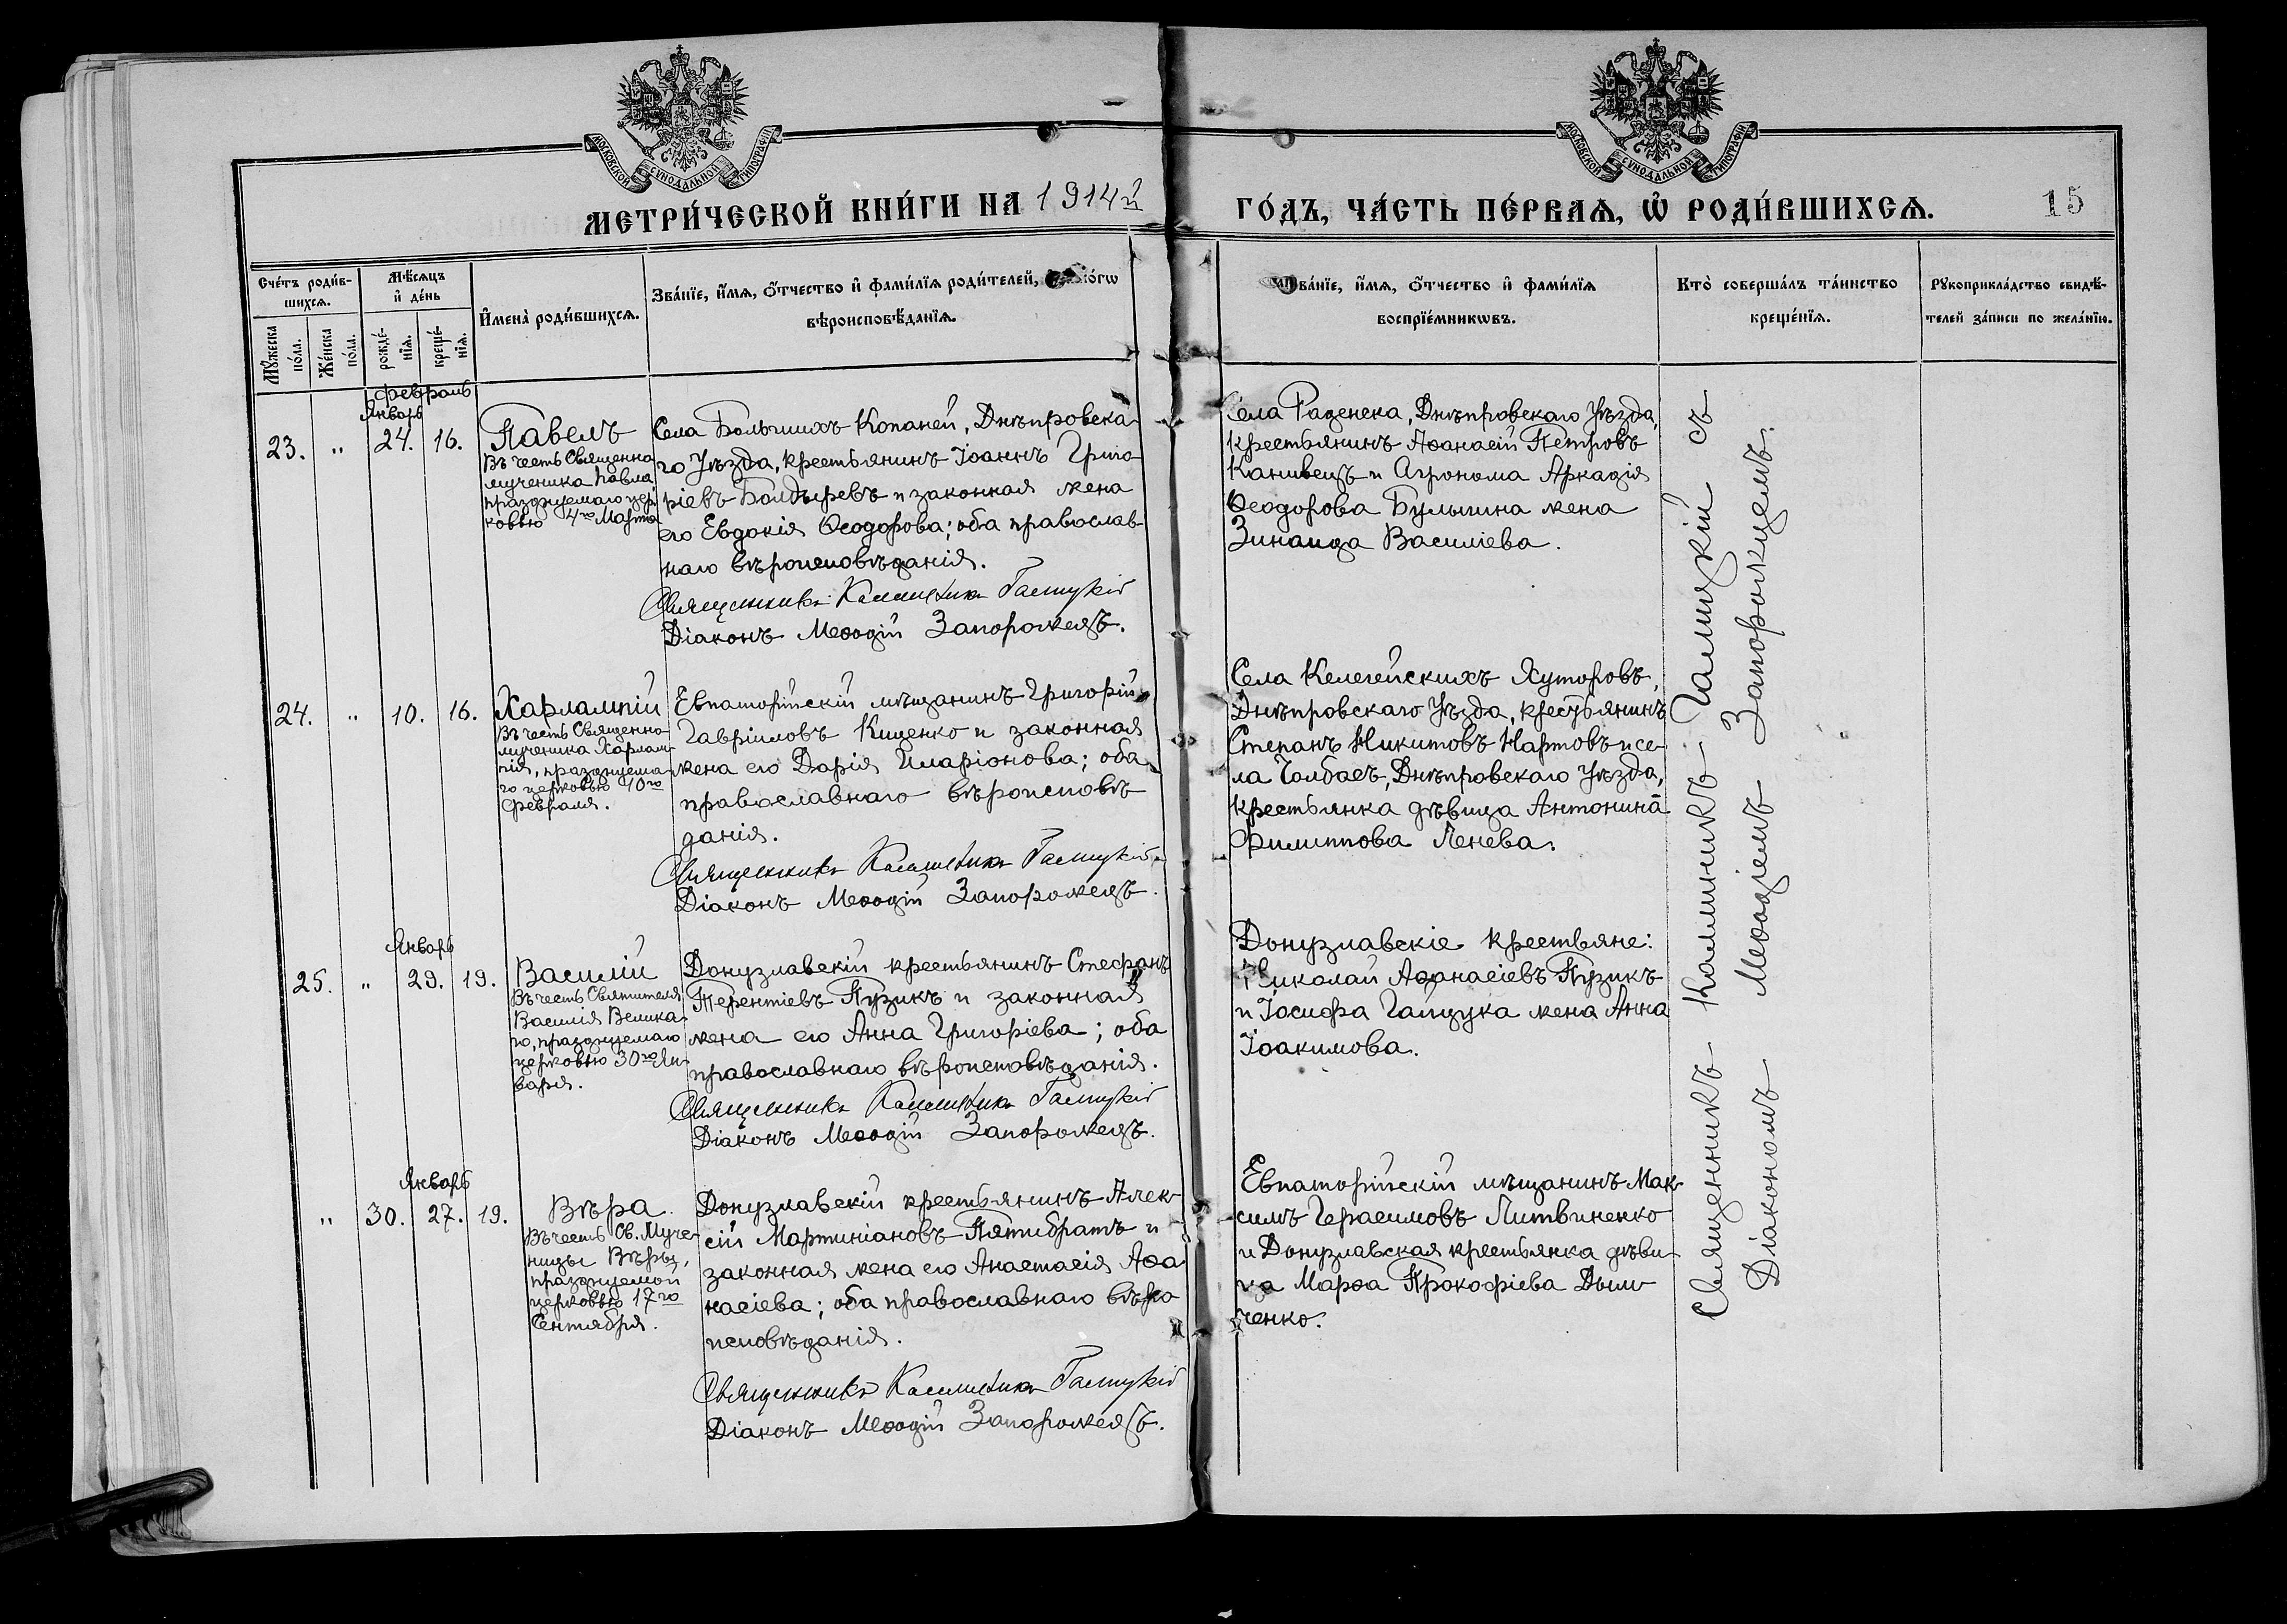 МОСКОВСКОЙ СѴНОДАЛЬНОЙ ТИПОГРАФІИ
МОСКОВСКОЙ СѴНОДАЛЬНОЙ ТИПОГРАФІИ
МЕТРИ́ЧЕСКОЙ КНИ́ГИ НА 1914й
ГО́ДЪ, ЧА́СТЬ ПЕ́РВАѦ, Ѡ҆ РОДИ́ВШИХСѦ.
15
Сче́тъ роди́в-
шихсѧ.
Мꙋ́жеска
по́ла.
Же́нска
по́ла.
Мѣ́сѧцъ
и҆ де́нь
рожде́-
нїѧ.
креще́-
нїѧ.
И҆мена̀ роди́вшихсѧ.
Зва́нїе, и҆́мѧ, ѻ҆́тчество и҆ фами́лїѧ роди́телей,
вѣроисповѣ́данїѧ.
Зва́нїе, и҆́мѧ, ѻ҆́тчество и҆ фами́лїѧ
воспрїе́мникѡвъ.
Кто̀ соверша́лъ та́инство
креще́нїѧ.
Рꙋкоприкла́дство свидѣ́-
телей за́писи по жела́нїю.
февраль
Январь
23. " 24. 16.
Павелъ
Въ честь Священно
мученика Павла
празднуемаго цер
ковью 4го Марта
Села Большихъ Копаней, Днѣпровска-
го Уѣзда, крестьянинъ Іоаннъ Григо-
ріевъ Болдыревъ и законная жена
его Евдокія Ѳеодорова; оба православ-
наго вѣроисповѣданія.
Священникъ Каллиникъ Галицкій
Діаконъ Меѳодій Запорожецъ.
Села Раденска, Днѣпровскаго Уѣзда,
крестьянинъ Аѳанасій Петровъ
Канивецъ и Агронома Аркадія
Ѳеодорова Булыгина жена
Зинаида Василіева.
24. " 10. 16.
Харлампій
Въ честь Священно-
мученика Харлам-
пія, празднуема-
го церковью 10го
Февраля.
Евпаторійскій мѣщанинъ Григорій
Гавріиловъ Кищенко и законная
жена его Дарія Иларіонова; оба
православнаго вѣроисповѣ
данія.
Священникъ Каллиникъ Галицкій
Діаконъ Меѳодій Запорожецъ.
Села Келегейскихъ Хуторовъ,
Днѣпровскаго Уѣзда, крестьянинъ
Степанъ Никитовъ Нартовъ и се-
ла Чолбасъ, Днѣпровскаго Уѣзда,
крестьянка дѣвица Антонина
Филиппова Ленева.
Январь
25. " 29. 19.
Василій
Въ честь Святителя
Василія Велика-
го, празднуемаго
церковью 30го Ян-
варя.
Донузлавскій крестьянинъ Стефанъ
Терентіевъ Пузикъ и законная
жена его Анна Григоріева; оба
православнаго вѣроисповѣданія.
Священникъ Каллиникъ Галицкій
Діаконъ Меѳодій Запорожецъ.
Донузлавскіе крестьяне:
Николай Аѳанасіевъ Пузикъ
и Іосифа Гайдука жена Анна
Іоакимова.
Январь
" 30. 27. 19.
Вѣра.
Въ честь Св. Муче-
ницы Вѣры,
празднуемой
церковью 17го
Сентября.
Донузлавскій крестьянинъ Алек-
сій Мартиніановъ Пятибратъ и
законная жена его Анастасія Аѳа
насіева; оба православнаго вѣро
исповѣданія.
Священникъ Каллиникъ Галицкій
Діаконъ Меѳодій Запорожецъ.
Евпаторійскій мѣщанинъ Мак-
симъ Герасимовъ Литвиненко
и Донузлавская крестьянка дѣви-
ца Марѳа Прокофіева Дым-
ченко.
Священникъ Каллиникъ Галицкій съ
Діакономъ Меѳодіемъ Запорожцемъ.